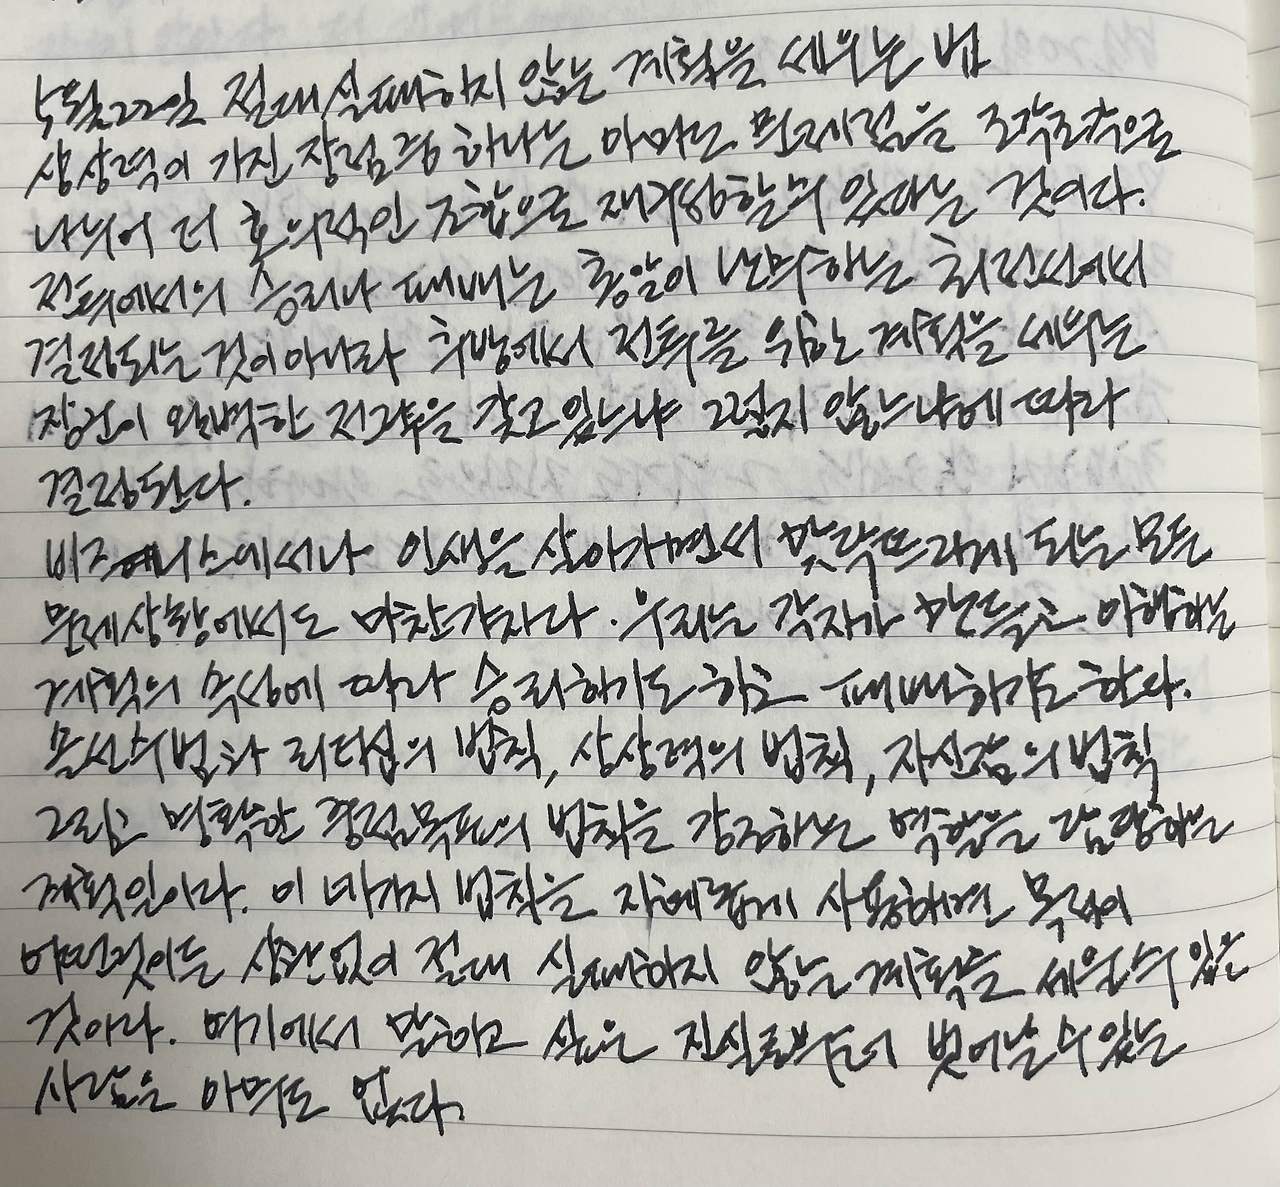 5월22일 절대실패하지 않는 계획을 세우는 법
상상력이 가진 장점중 하나는 아마도 문제점을 조각조각으로
나뉘어 더 호의적인 조합으로 재구성할수 있다는 것이다.
전투에서의 승리나 패배는 총알이 난무하는 최전선에서
결정되는 것이아니라 후방에서 전투를 위한 계획을 세우는
장군이 완벽한 전략을 갖고있느냐 그렇지 않느냐에 따라
결정된다.
비즈니스에서나 인생을 살아가면서 맞닥뜨리게 되는 모든
문제상황에서도 마찬가지다. 우리는 각자가 만들고 이행하는
계획의 속성에 따라 승리하기도 하고 패배하기도 한다.
리더십의 법칙, 상상력의 법칙, 자신감의 법칙
그리고 명확한 중점목표의 법칙을 강조하는 역할을 담당하는
계획인이다. 이 네가지 법칙을 지혜롭게 사용하면 목적이
어떤것이든 상관없이 절대 실패하지 않는 계획을 세울수 있을
것이다. 여기에서 말하고 싶은 진실로부터 벗어날수있는
사람은 아무도 없다.